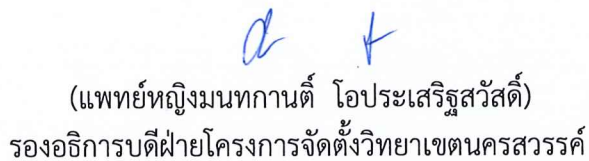 (แพทย์หญิงมนทกานติ์ โอประเสริฐสวัสดิ์)
รองอธิการบดีฝ่ายโครงการจัดตั้งวิทยาเขตนครสวรรค์